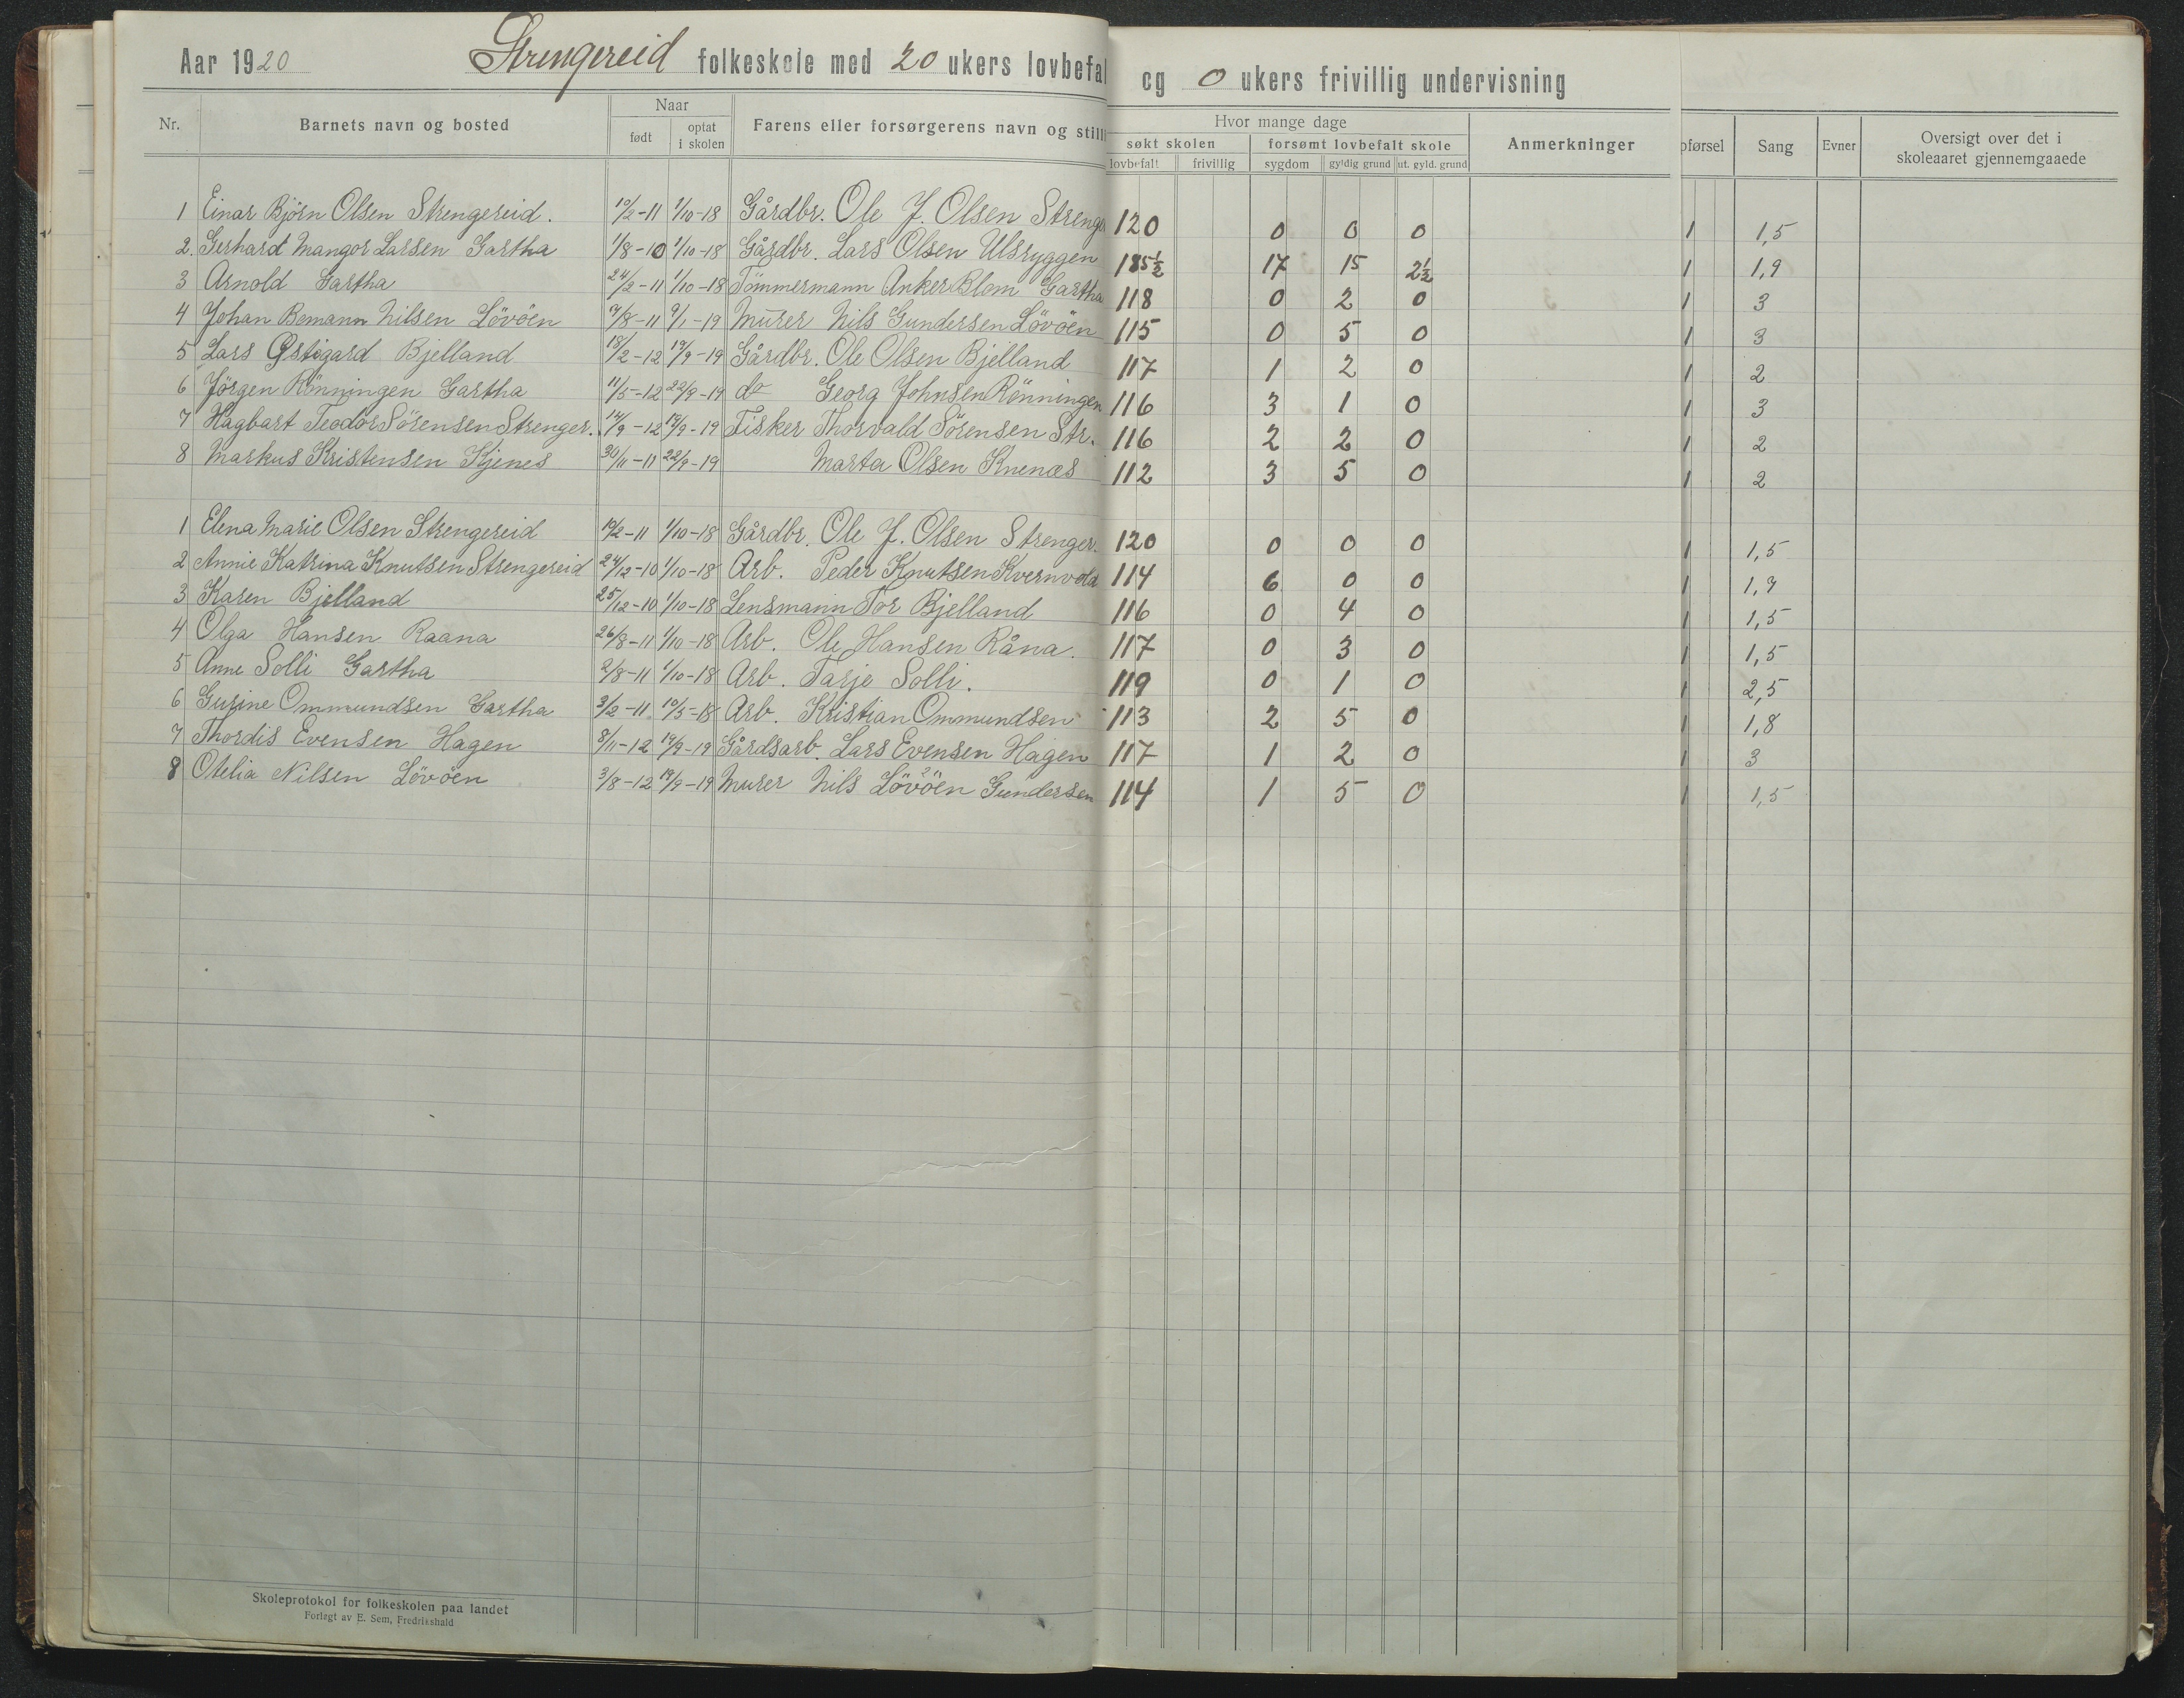 Aar 1920 Strengereid folkeskole med 20 ukers lovbefal og 0 ukers frivillig undervisning
Nr. Barnets navn og bosted Naar født optat i skolen Farens eller forsørgerens navn og still Hvor mange dage søkt skolen lovbefalt frivillig forsømt lovbefalt skole sygdom gyldig grund ut. gyld. grund Anmerkninger pførsel Sang Evner Oversigt over det i skoleaaret gjennemgaaede
1 Einar Bjørn Olsen Strengereid. 10/2-11 1/10-18 Gårdbr. Ole J. Olsen Strenge 120 0 0 0 1 1,5
2. Gerhard Mangor Larsen Gartha 1/8-10 1/10-18 Gårdbr. Lars Olsen Ulsryggen 185½ 17 15 2½ 1 1,9
3 Arnold Gartha 24/2-11 1/10-18 Tömmermann Anker Blom Gartha 118 0 2 0 1 3
4 Johan Bemann Nilsen Lövöen 19/8-11 9/1-19 Murer Nils Gundersen Lövöen 115 0 5 0 1 3
5 Lars Østigard Bjelland 18/2-12 19/9-19 Gårdbr. Ole Olsen Bjelland 117 1 2 0 1 2
6 Jörgen Rönningen Gartha 11/5-12 22/9-19 do Georg Johnsen Rönningen 116 3 1 0 1 3
7 Hagbart Teodor Sörensen Strenger. 14/9-12 19/9-19 Fisker Thorvald Sörensen Str. 116 2 2 0 1 2
8 Markus Kristensen Kjenes 30/11-11 22/9-19 Marta Olsen Knenæs 112 3 5 0 1 2
1 Elena Marie Olsen Strengereid 10/2-11 1/10-18 Gårdbr. Ole J. Olsen Strenger. 120 0 0 0 1 1,5
2 Annie Katrina Knutsen Strengereid 24/12-10 1/10-18 Arb. Peder Knutsen Kvernvold 114 6 0 0 1 1,9
3 Karen Bjelland 25/12-10 1/10-18 Lensmann Tor Bjelland 116 0 4 0 1 1,5
4 Olga Hansen Raana 26/8-11 1/10-18 Arb. Ole Hansen Råna. 117 0 3 0 1 1,5
5 Anne Solli Gartha 2/8-11 1/10-18 Arb. Tarje Solli. 119 0 1 0 1 2,5
6 Gurine Ommundsen Gartha 3/2-11 10/5-18 Arb. Kristian Ommundsen 113 2 5 0 1 1,8
7 Thordis Evensen Hagen 8/11-12 19/9-19 Gårdsarb. Lars Evensen Hagen 117 1 2 0 1 3
8 Otelia Nilsen Lövöen 3/8-12 19/9-19 Murer Nils Lövöen Gundersen 114 1 5 0 1 1,5
Skoleprotokol for folkeskolen paa landet
Forlagt av E. Sem, Fredrikshald